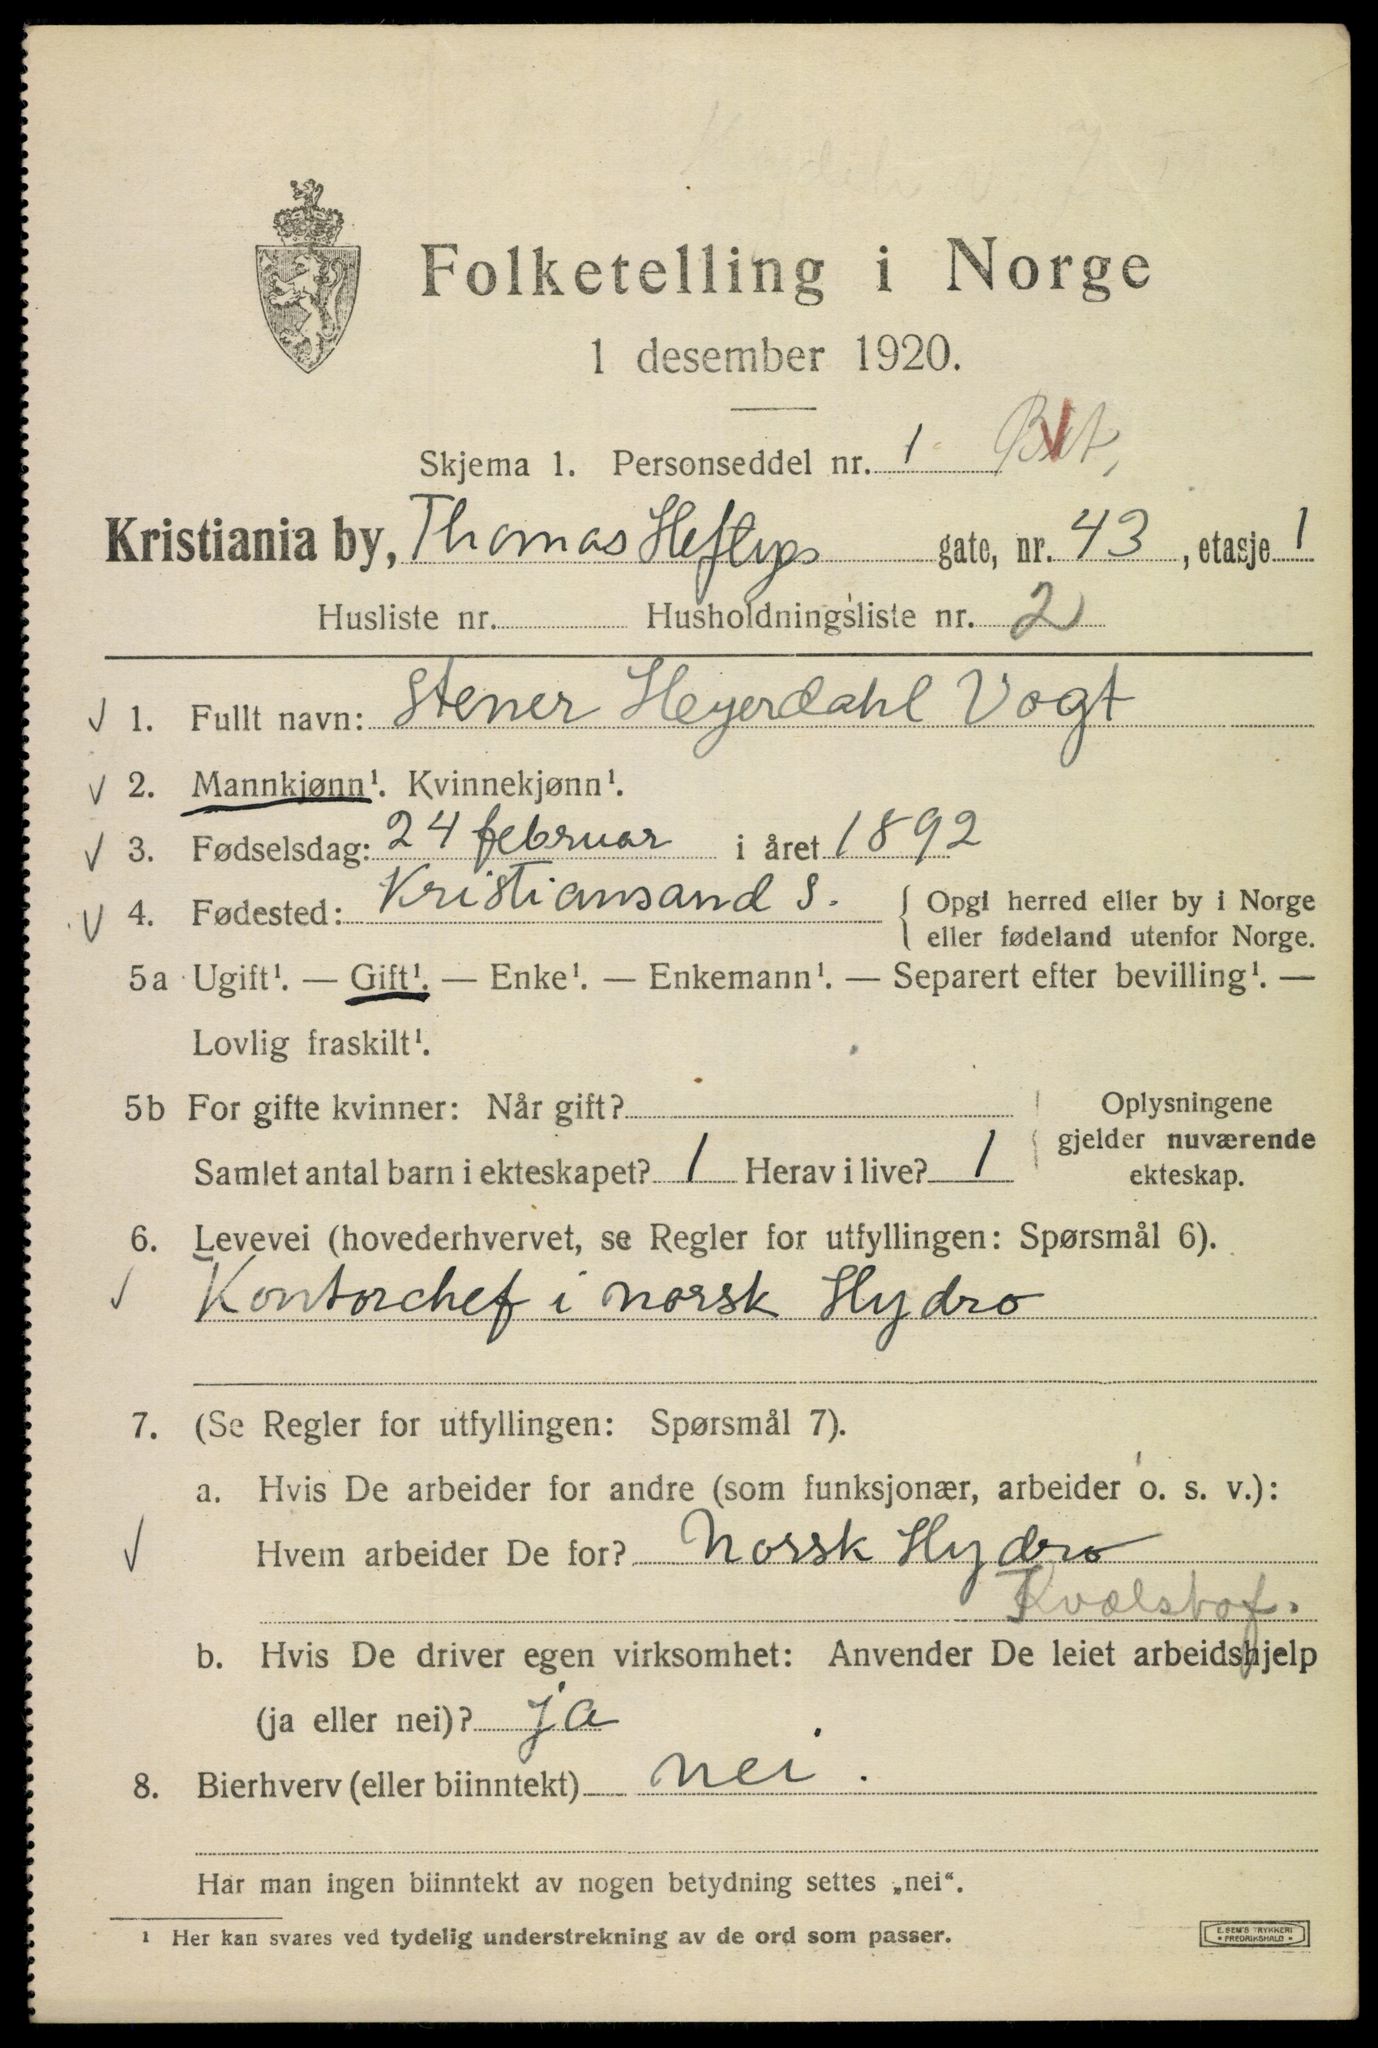 Folketelling i Norge
1 desember 1920.
Skjema 1. Personseddel nr. 1
Kristiania by, Thomas Heftyes gate, nr. 43, etasje 1
Husliste nr. Husholdningsliste nr. 2
1. Fullt navn: Stener Heyerdahl Vogt
2. Mannkjønn¹. Kvinnekjønn¹.
3. Fødselsdag: 24 februar i året 1892
4. Fødested: Kristiansand S. { Opgi herred eller by i Norge
eller fødeland utenfor Norge.
5a Ugift¹. — Gift¹. — Enke¹. — Enkemann¹. — Separert efter bevilling¹. —
Lovlig fraskilt¹.
5b For gifte kvinner: Når gift? Oplysningene
gjelder nuværende
Samlet antal barn i ekteskapet? 1 Herav i live? 1 ekteskap.
6. Levevei (hovederhvervet, se Regler for utfyllingen: Spørsmål 6).
Kontorchef i norsk Hydro
7. (Se Regler for utfyllingen: Spørsmål 7).
a. Hvis De arbeider for andre (som funksjonær, arbeider o. s. v.):
Hvem arbeider De for? Norsk Hydro
Kvælstof.
b. Hvis De driver egen virksomhet: Anvender De leiet arbeidshjelp
(ja eller nei)? ja
8. Bierhverv (eller biinntekt) nei.
Har man ingen biinntekt av nogen betydning settes „nei“.
¹ Her kan svares ved tydelig understrekning av de ord som passer.
E. SEM'S TRYKKERI
• FREDRIKSHALD •